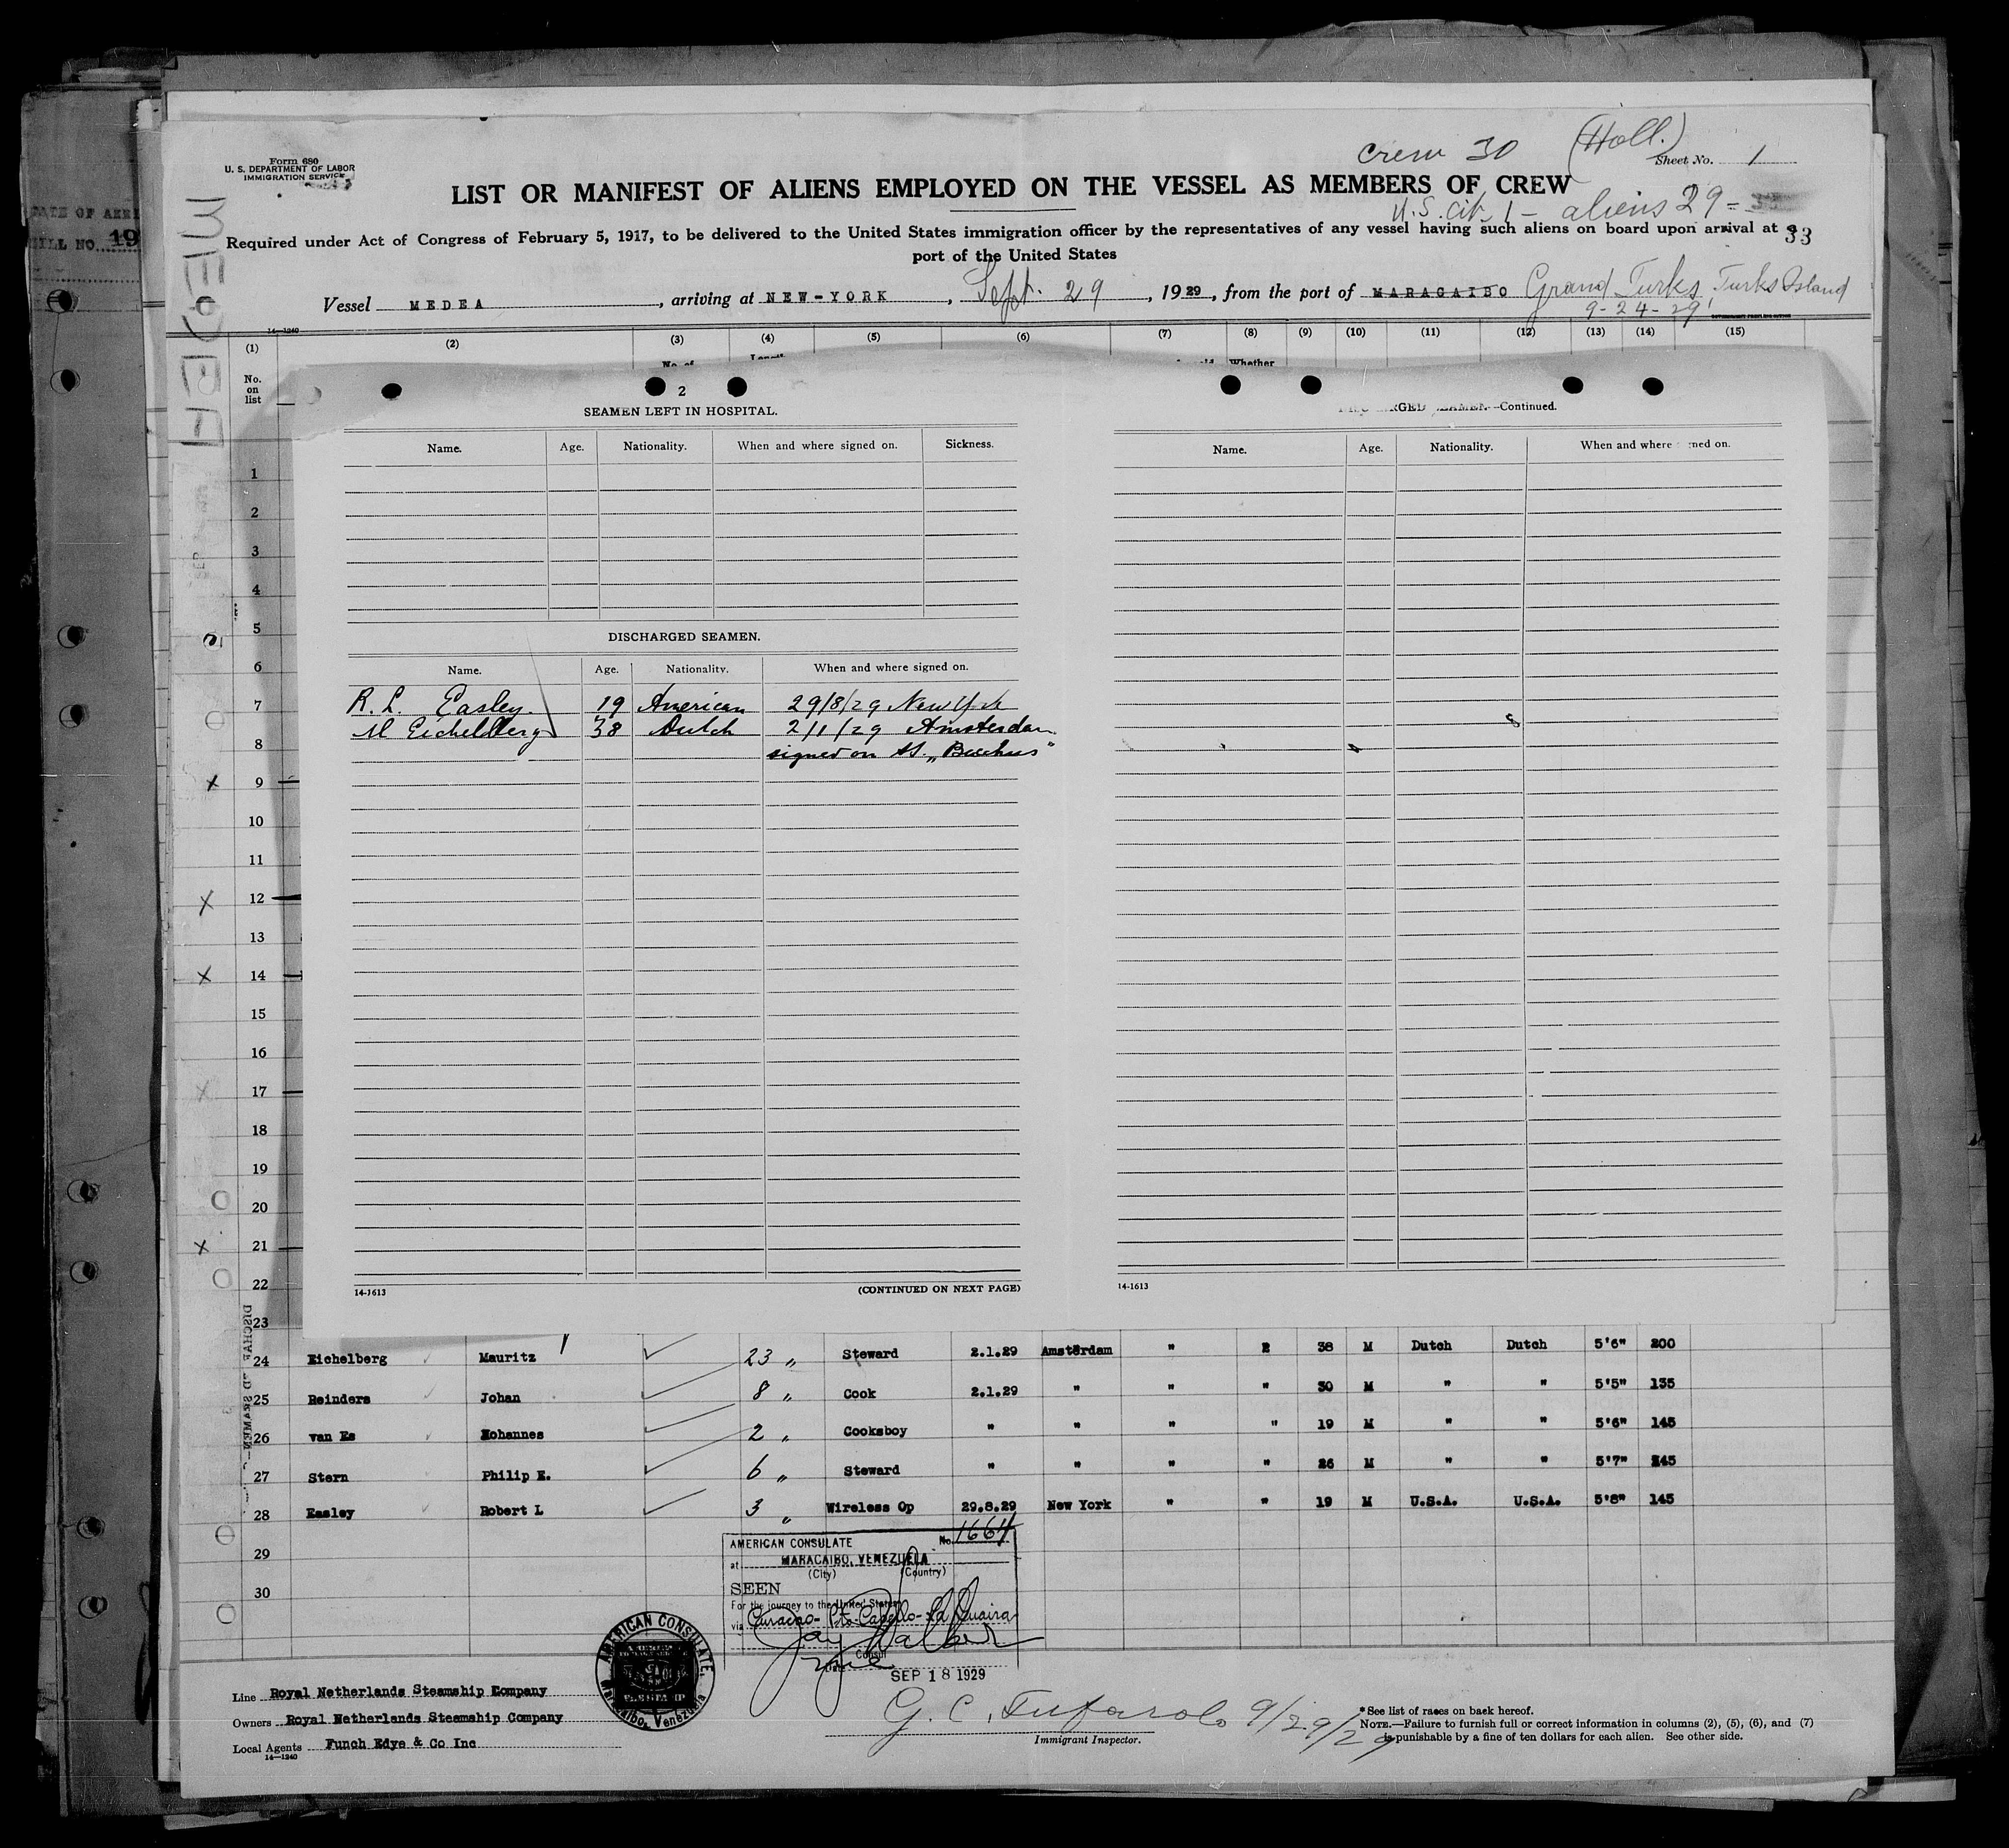 Form 680
U. S. DEPARTMENT OF LABOR
IMMIGRATION SERVICE
crew 30 (Holl.)
Sheet No. 1
LIST OR MANIFEST OF ALIENS EMPLOYED ON THE VESSEL AS MEMBERS OF CREW
U.S. cit. 1 - aliens 29 =
Required under Act of Congress of February 5, 1917, to be delivered to the United States immigration officer by the representatives of any vessel having such aliens on board upon arrival at a
33
port of the United States
Vessel MEDEA, arriving at NEW-YORK, Sept. 29, 1929, from the port of MARACAIBO Grand Turks, Turks Island
9-24-29
14-1240
MEDEA
DATE OF
BILL NO. 19
(1) (2) (3) (4) (5) (6) (7) (8) (9) (10) (11) (12) (13) (14) (15)
No. of Whether
No.
on
list
2
SEAMEN LEFT IN HOSPITAL.
Name. Age. Nationality. When and where signed on. Sickness.
DISCHARGED SEAMEN.
Name. Age. Nationality. When and where signed on.
R. L. Easley. 19 American 29/8/29 New York
M Eichelberg 38 Dutch 2/1/29 Amsterdam
signed on SS. „Bacchus"
14-1613 (CONTINUED ON NEXT PAGE)
SEAMEN—Continued.
Name. Age. Nationality. When and where signed on.
14-1613
1
2
3
4
5
6
7
8
x 9
10
11
x 12
13
x 14
15
16
x 17
18
19
20
x 21
22
23
24 Eichelberg Mauritz 23 „ Steward 2.1.29 Amsterdam " 38 M Dutch Dutch 5'6" 200
25 Reinders Johan 8 „ Cook 2.1.29 " " " 30 M " " 5'5" 135
26 van Es Hohannes 2 „ Cooksboy " " " " 19 M " " 5'6" 145
27 Stern Philip E. 6 „ Steward " " " " 26 M " " 5'7" 145
28 Easley Robert L 3 „ Wireless Op 29.8.29 New York " " 19 M U.S.A. U.S.A. 5'8" 145
29
30
AMERICAN CONSULATE No. 1664
at MARACAIBO, VENEZUELA
(City) (Country)
SEEN
For the journey to the United States
via Curacao- Pto-Cabello- La Guaira
Jay Walker
Vice Consul
Date SEP 18 1929
AMERICAN CONSULATE,
Maracaibo, Venezuela
Line Royal Netherlands Steamship Company
Owners Royal Netherlands Steamship Company
Local Agents Funch Edye & Co Inc
14-1240
G. C. Tufarolo 9/29/29
Immigrant Inspector.
*See list of races on back hereof.
NOTE.—Failure to furnish full or correct information in columns (2), (5), (6), and (7)
is punishable by a fine of ten dollars for each alien. See other side.